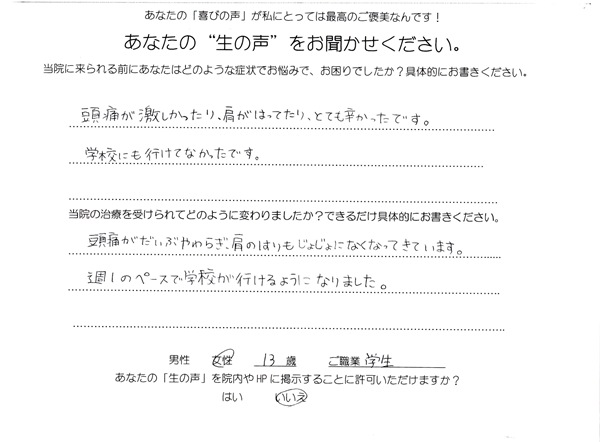 あなたの「喜びの声」が私にとっては最高のご褒美なんです！
あなたの“生の声”をお聞かせください。
当院に来られる前にあなたはどのような症状でお悩みで、お困りでしたか？具体的にお書きください。
頭痛が激しかったり、肩がはってたり、とても辛かったです。
学校にも行けてなかったです。
当院の治療を受けられてどのように変わりましたか？できるだけ具体的にお書きください。
頭痛がだいぶやわらぎ、肩のはりもじょじょになくなってきています。
週1のペースで学校が行けるようになりました。
男性 女性 13 歳 ご職業 学生
あなたの「生の声」を院内やHPに掲示することに許可いただけますか？
はい いいえ